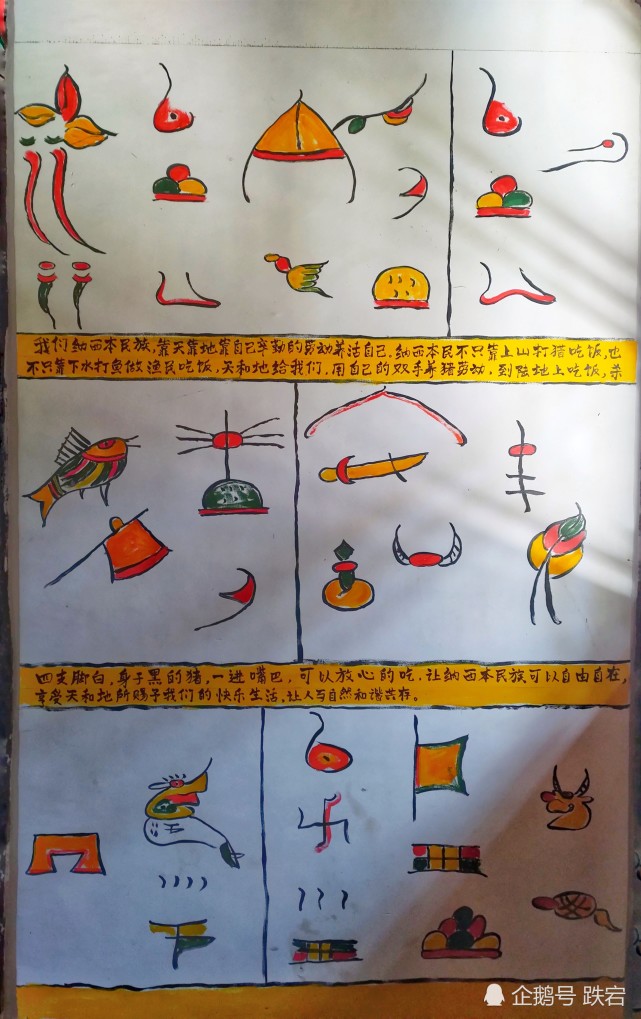 我们纳西本民族,靠天靠地靠自己辛勤的劳动养活自己.纳西本民不只靠上山打猎吃饭,也
不只靠下水打鱼做渔民吃饭,天和地给我们,用自己的双手养猪劳动,到陆地上吃饭,杀
四支脚白,身子黑的猪,一进嘴巴,可以放心的吃.让纳西本民族可以自由自在,
享受天和地所赐予我们的快乐生活,让人与自然和谐共存。
企鹅号 跌宕